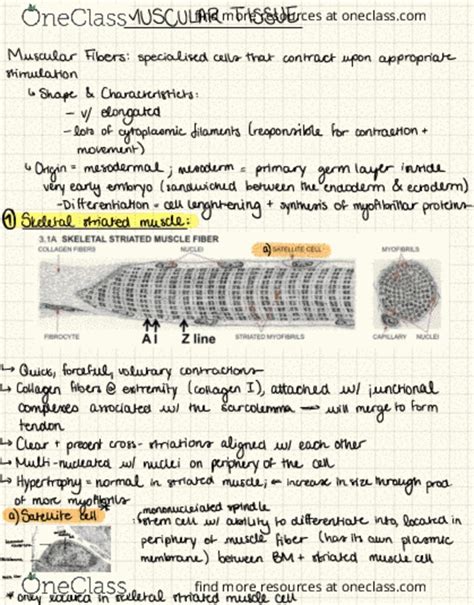 OneClass find more resources at oneclass.com
MUSCULAR TISSUE
Muscular Fibers: specialised cells that contract upon appropriate
stimulation
↳ Shape & Characteristics:
- v/ elongated
- lots of cytoplasmic filaments (responsible for contraction +
movement)
↳ Origin = mesodermal; mesoderm = primary germ layer inside
very early embryo (sandwiched between the endoderm & ectoderm)
- Differentiation = cell lenghtening + synthesis of myofibrillar proteins
1 Skeletal striated muscle:
3.1A SKELETAL STRIATED MUSCLE FIBER
COLLAGEN FIBERS NUCLEI a) SATELLITE CELL MYOFIBRILS
FIBROCYTE A I Z line STRIATED MYOFIBRILS CAPILLARY NUCLEI
↳ Quick, forceful, voluntary contractions
↳ Collagen fibers @ extremity (collagen I), attached w/ junctional
complexes associated w/ the sarcolemma → will merge to form
tendon
↳ Clear + present cross-striations aligned w/ each other
↳ Multi-nucleated w/ nuclei on periphery of the cell
↳ Hypertrophy = normal in striated muscle; increase in size through prod
of more myofibrils
a) Satellite cell * mononucleated spindle
: stem cell w/ ability to differentiate into, located in
periphery of muscle fiber (has its own plasmic
membrane) between BM + striated muscle cell
OneClass find more resources at oneclass.com
* only located in skeletal striated muscle cell